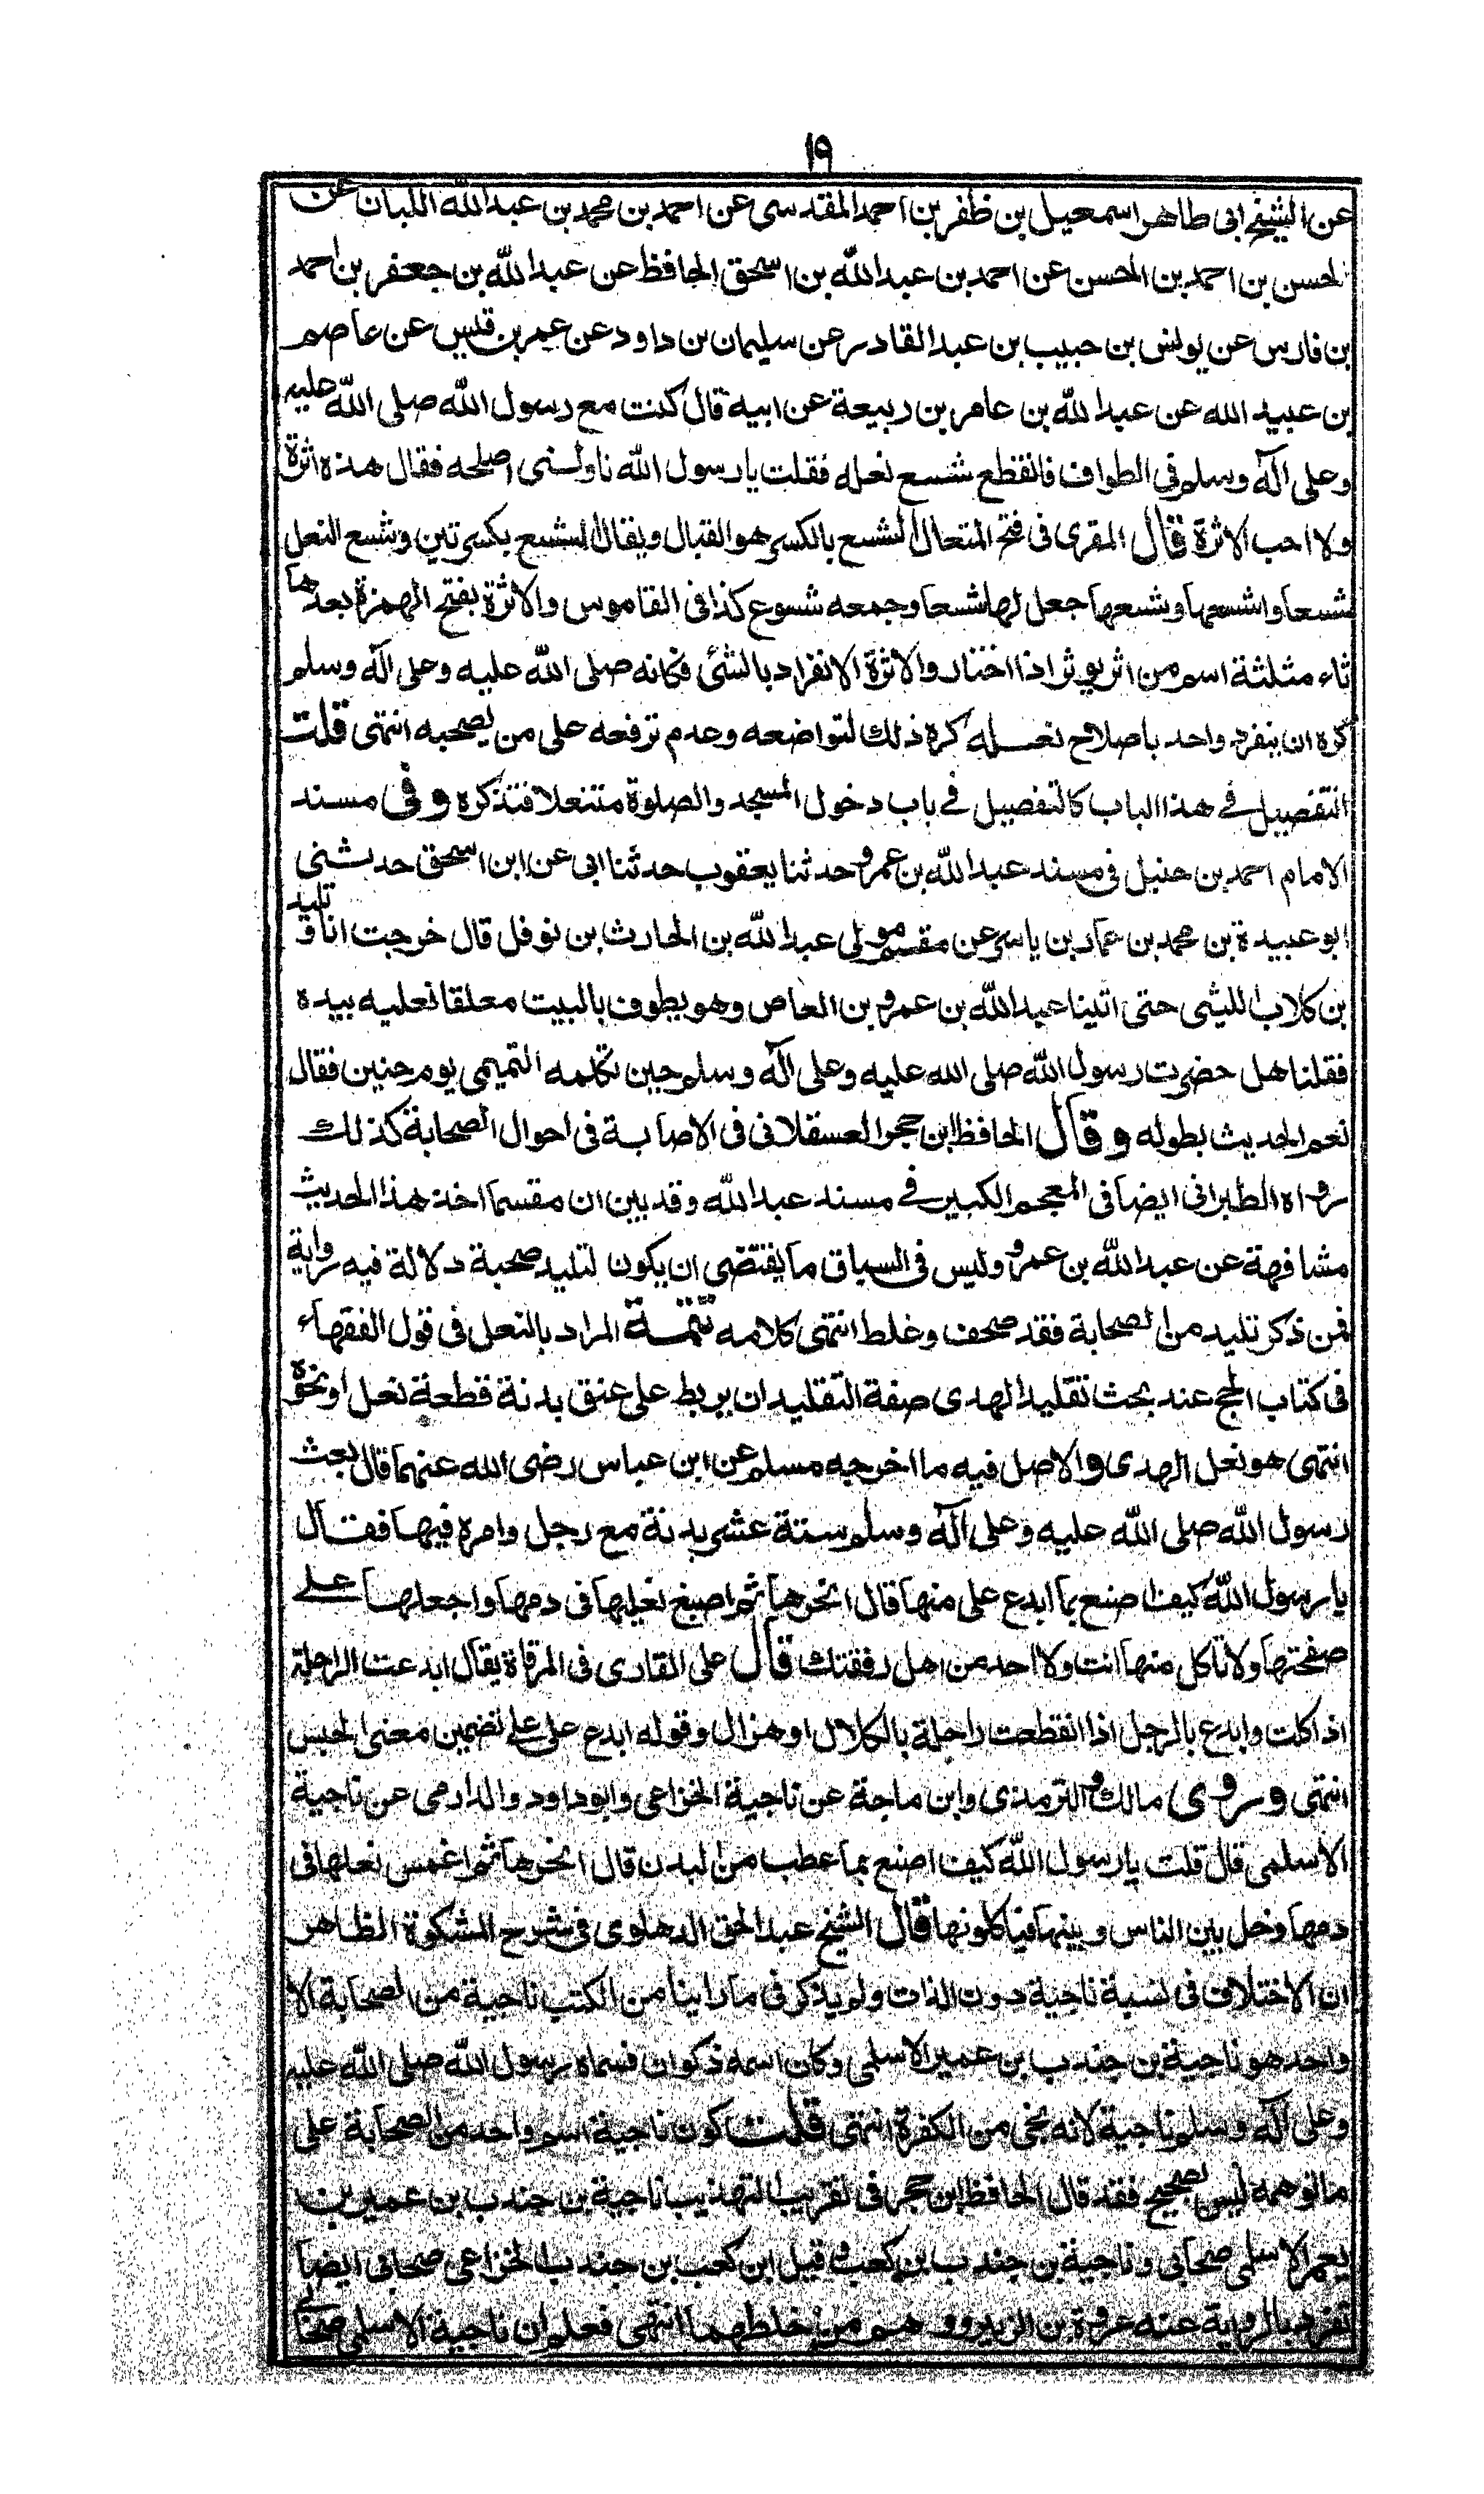 ١٩
عن الشيخ ابى طاهر اسمعيل بن ظفر بن احمد المقدسى عن احمد بن محمد بن عبد الله اللبان عن
الحسن بن احمد بن الحسن عن احمد بن عبد الله بن اسحق الحافظ عن عبد الله بن جعفر بن احمد
بن فارس عن يونس بن حبيب بن عبد القادر عن سليمان بن داود عن عمر بن قيس عن عاصم
بن عبيد الله عن عبد الله بن عامر بن ربيعة عن ابيه قال كنت مع رسول الله صلى الله عليه
وعلى آله وسلم فى الطواف فانقطع شسع نعله فقلت يا رسول الله ناولنى اصلحه فقال هذه اثرة
ولا احب الاثرة قال المقرى فى فتح المتعال الشسع بالكسر هو القبال ويقال الشسع بكسرتين وشسع النعل
شسعا واشسعها وشسعها جعل لها شسعا وجمعه شسوع كذا فى القاموس والاثرة بفتح الهمزة بعدها
ثاء مثلثة اسم من اثر يوثر اذا اختار والاثرة الانفراد بالشئ فكانه صلى الله عليه وعلى آله وسلم
كره ان ينفرد واحد باصلاح نعله كره ذلك لتواضعه وعدم ترفعه على من يصحبه انتهى قلت
التفصيل فے هذا الباب كالتفصيل فے باب دخول المسجد والصلوة متنعلا فتذكره وفى مسند
الامام احمد بن حنبل فى مسند عبد الله بن عمرو حدثنا يعقوب حدثنا ابى عن ابن اسحق حدثنى
ابو عبيدة بن محمد بن عمار بن ياسر عن مقسم مولى عبد الله بن الحارث بن نوفل قال خرجت انا و تليد
بن كلاب الليثى حتى اتينا عبد الله بن عمرو بن العاص وهو يطوف بالبيت معلقا نعليه بيده
فقلنا هل حضرت رسول الله صلى الله عليه وعلى آله وسلم حين تكلمه التميمى يوم حنين فقال
نعم الحديث بطوله وقال الحافظ ابن حجر العسقلانى فى الاصابة فى احوال الصحابة كذلك
رواه الطبرانى ايضا فى المعجم الكبير فے مسند عبد الله وقد بين ان مقسما اخذ هذا الحديث
مشافهة عن عبد الله بن عمرو وليس فى السياق ما يقتضى ان يكون لتليد صحبة دلالة فيه رواية
فمن ذكر تليد من الصحابة فقد صحف وغلط انتهى كلامه تتمة المراد بالنعل فى قول الفقهاء
فى كتاب الحج عند بحث تقليد الهدى صفة التقليد ان يربط على عنق بدنة قطعة نعل او نحوه
انتهى هو نعل الهدى والاصل فيه ما اخرجه مسلم عن ابن عباس رضى الله عنهما قال بعث
رسول الله صلى الله عليه وعلى آله وسلم ستة عشر بدنة مع رجل وامره فيها فقال
يا رسول الله كيف اصنع بما ابدع على منها قال انحرها ثم اصبغ نعليها فى دمها واجعلها علے
صفحتها ولا تاكل منها انت ولا احد من اهل رفقتك قال على القارى فى المرقاة يقال ابدعت الراحلة
اذا كلت وابدع بالرجل اذا انقطعت راحلة بالكلال او هزال وقوله ابدع على علے تضمين معنى الحبس
انتهى وروى مالك والترمذى وابن ماجة عن ناجية الخزاعى وابو داود والدارمى عن ناجية
الاسلمى قال قلت يا رسول الله كيف اصنع بما عطب من البدن قال انحرها ثم اغمس نعلها فى
دمها وخل بين الناس وبينها فياكلونها قال الشيخ عبد الحق الدهلوى فى شرح المشكوة الظاهر
ان الاختلاف فى نسبة ناجية دون الذات ولم يذكر فى ما راينا من الكتب ناجية من الصحابة الا
واحد هو ناجية بن جندب بن عمير الاسلمى وكان اسمه ذكوان فسماه رسول الله صلى الله عليه
وعلى آله وسلم ناجية لانه نجى من الكفرة انتهى قلت كون ناجية اسم واحد من الصحابة على
ما توهمه ليس بصحيح فقد قال الحافظ ابن حجر فى تقريب التهذيب ناجية بن جندب بن عمير بن
يعمر الاسلمى صحابى وناجية بن جندب بن كعب وقيل ابن كعب بن جندب الخزاعى صحابى ايضا
تفرد بالرواية عنه عروة بن الزبير ووهم من خلطهما انتهى فعلم ان ناجية الاسلمى صحابى